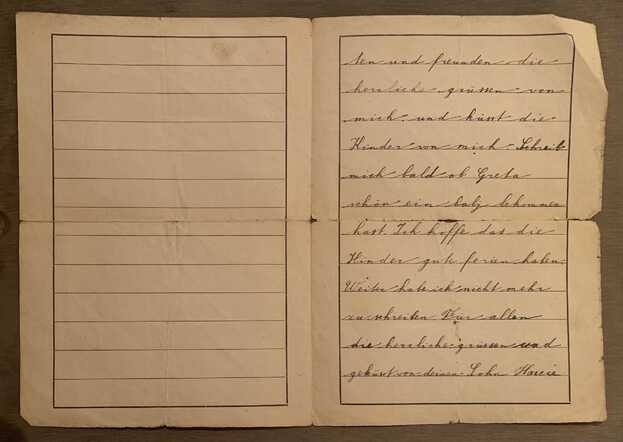 ten und freunden die
herrliche grüssen von
mich. und küsst die
Kinder von mich. Schreib
mich bald ob Greta
schön ein baby bekommen
hast. Ich hoffe das die
Kinder gute ferien haben.
Weiter habe ich nicht mehr
zu schreiben Für allen
die herrliche grüssen und
geküst von deinen Sohn